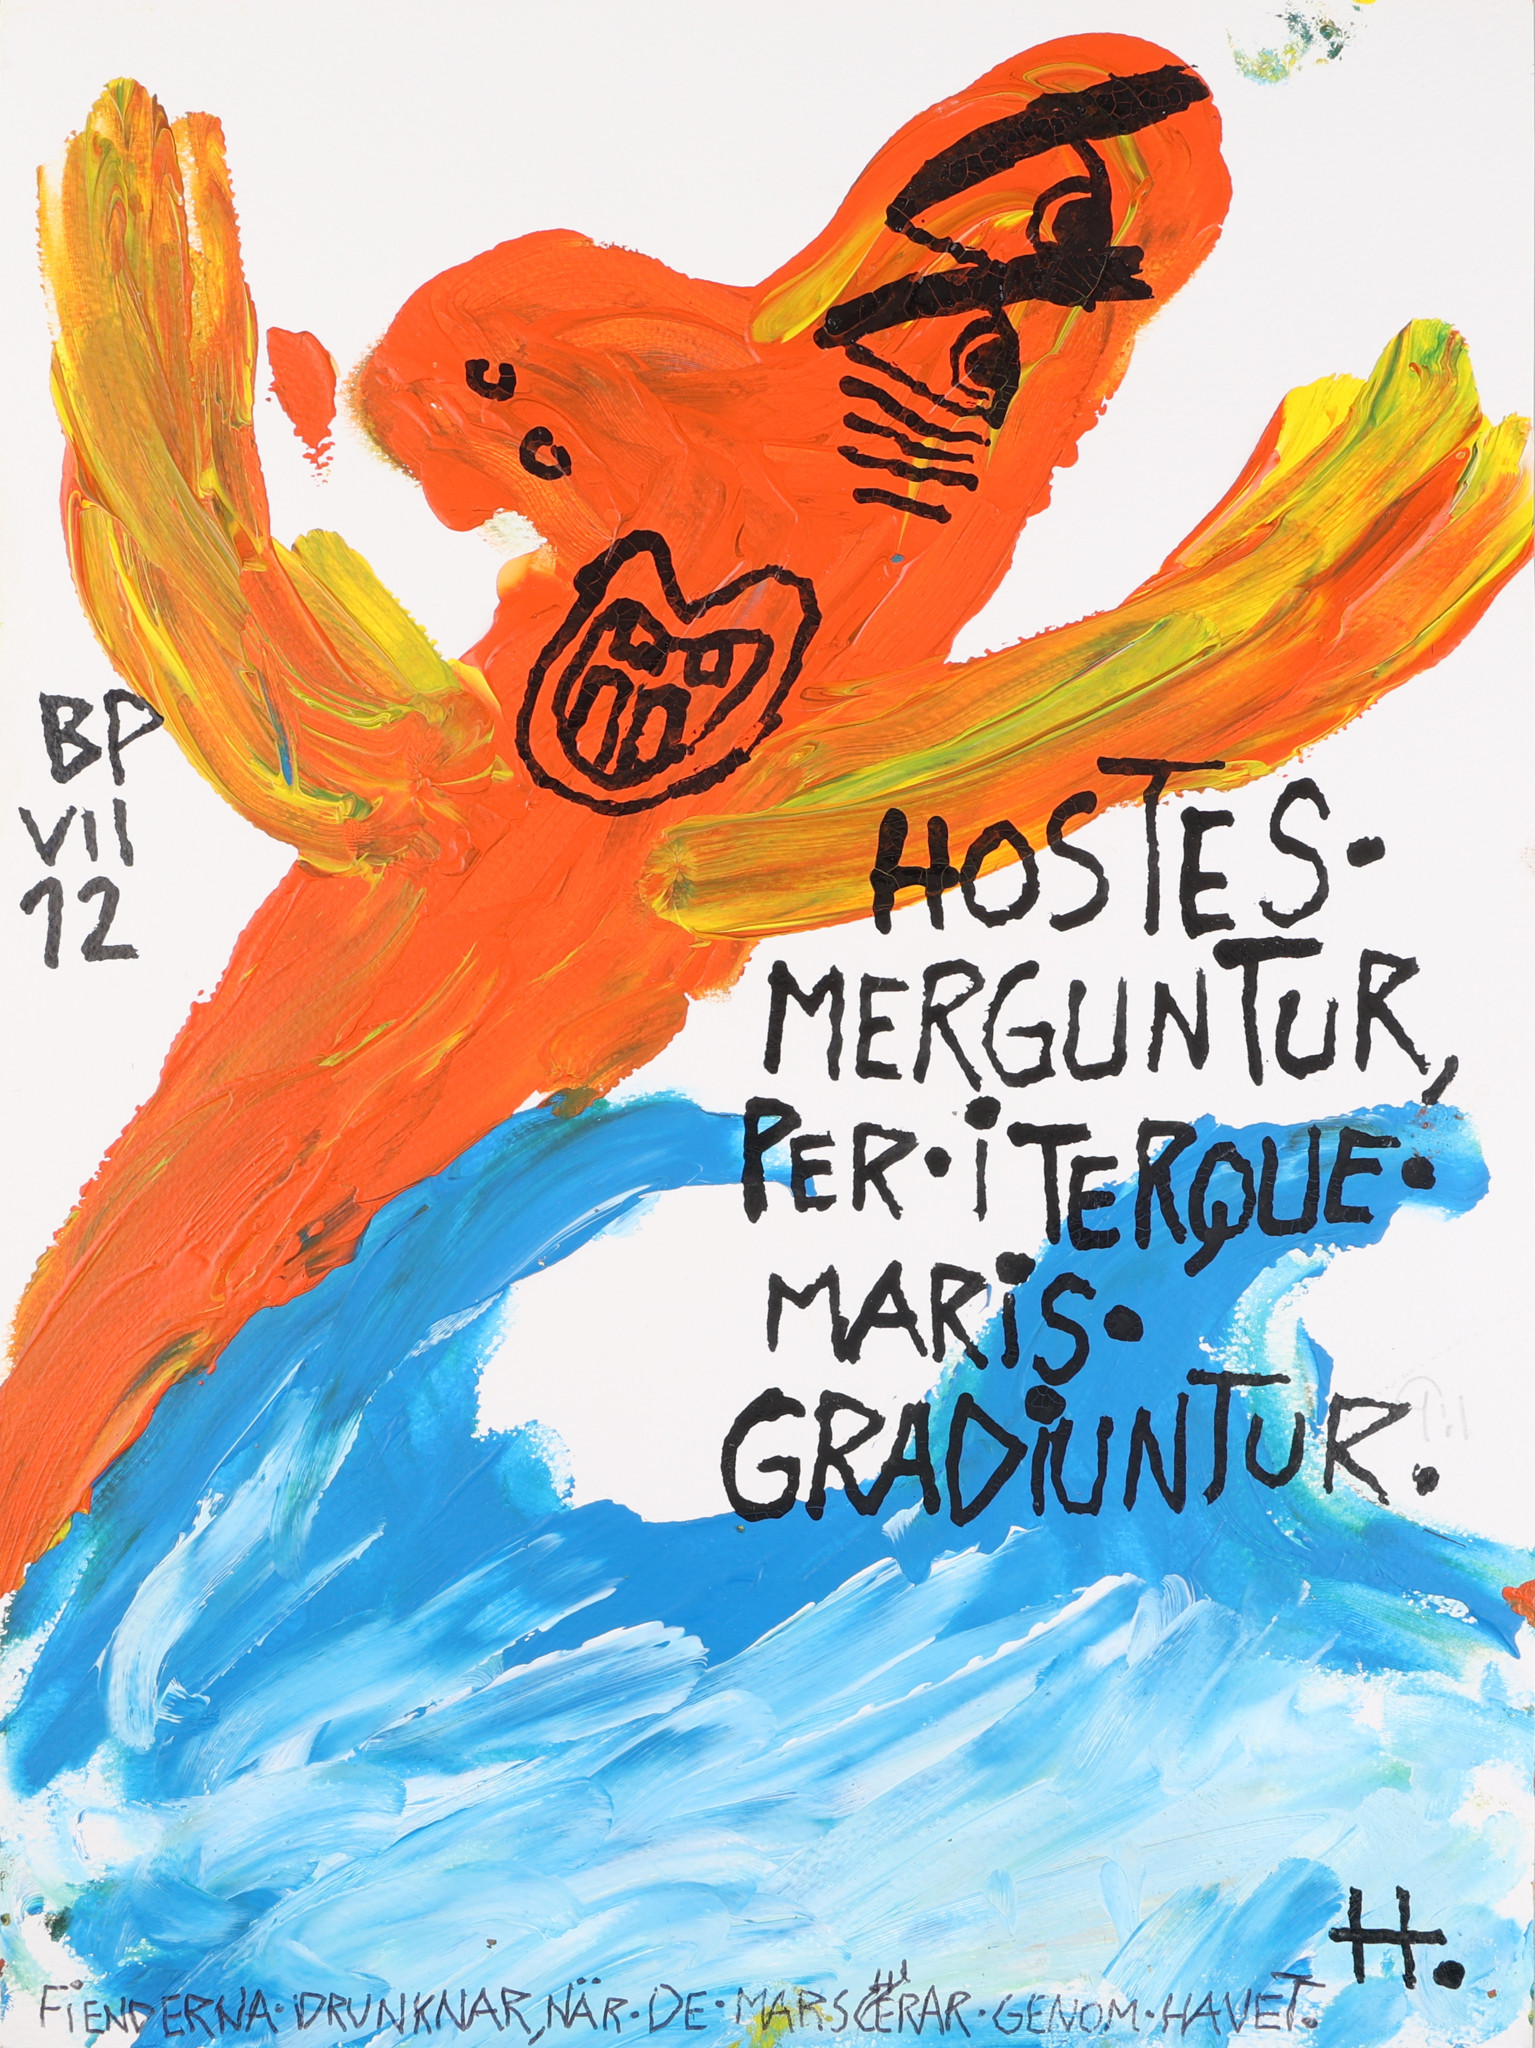 BP
VII
12
HOSTES·
MERGUNTUR,
PER·iTERQUE·
MARiS·
GRADiUNTUR.
H.
FiENDERNA·DRUNKNAR, NÄR·DE·MARSCHERAR·GENOM·HAVET.